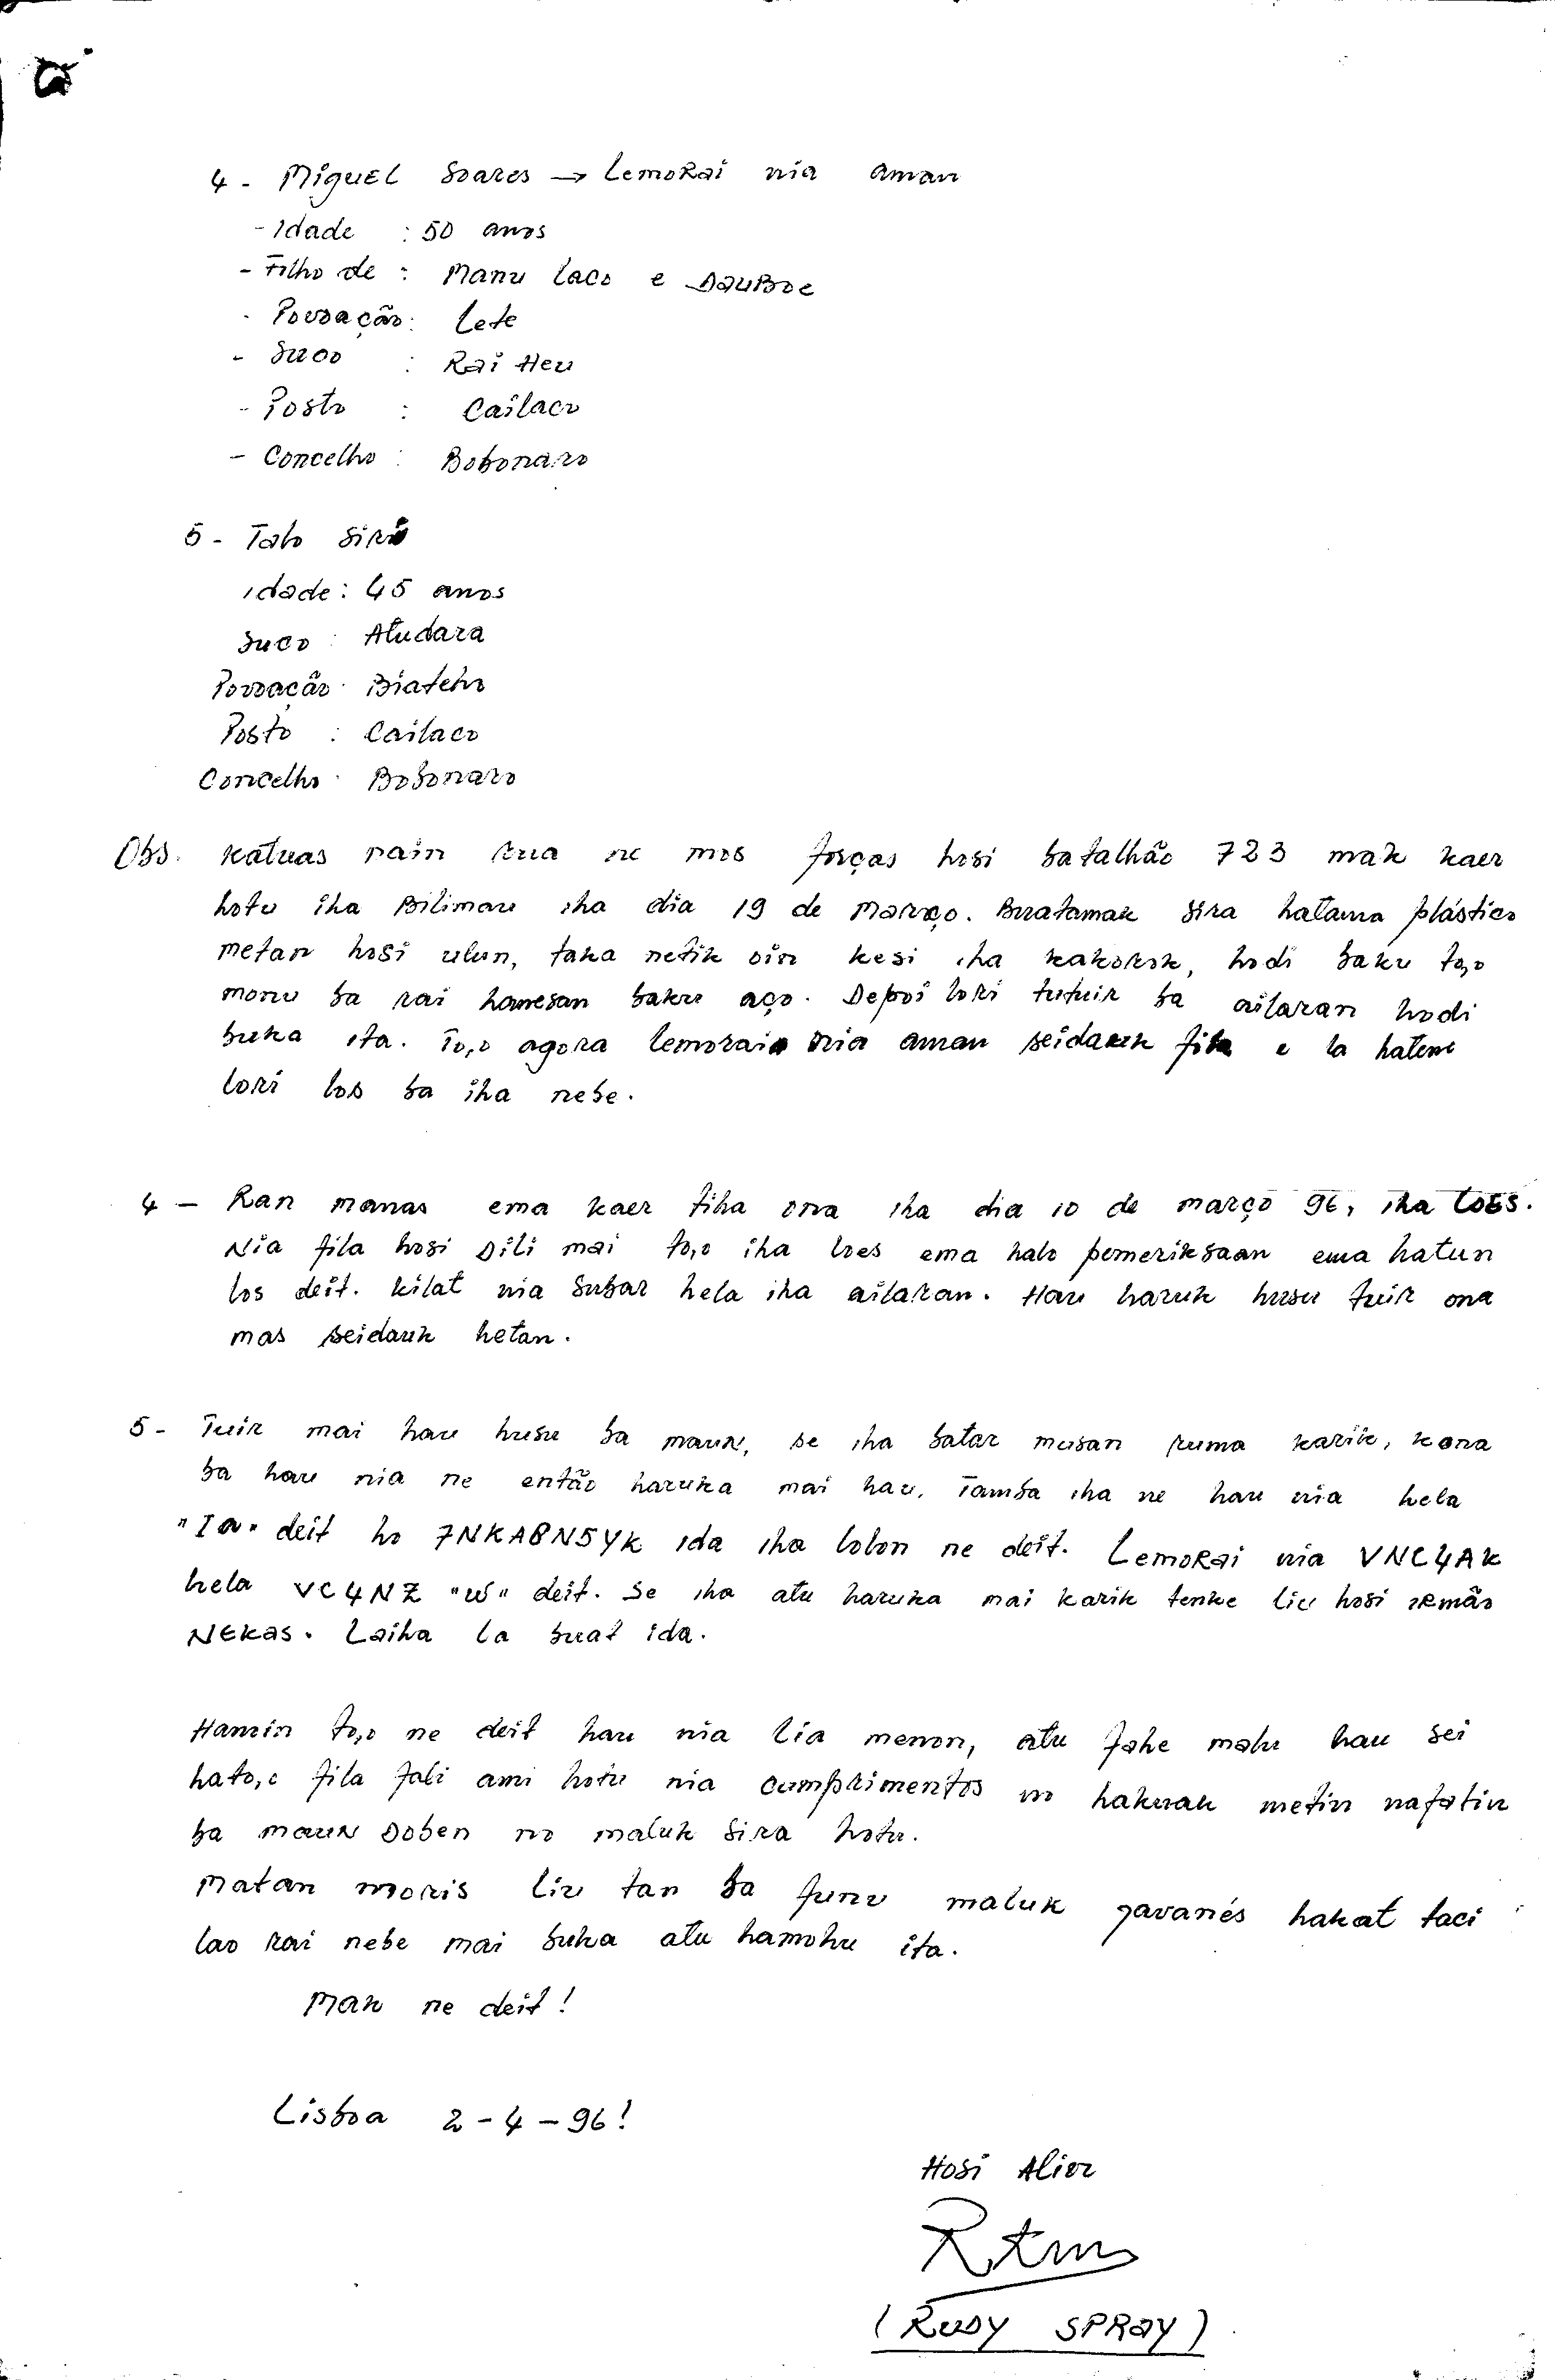 4 - Miguel Soares → Lemorai nia aman
- Idade : 50 anos
- Filho de : Manu Laco e DauBoe
- Povoação : Lete
- Suco : Rai Heu
- Posto : Cailaco
- Concelho : Bobonaro
5 - Talo Siri
idade : 45 anos
Suco : Atudara
Povoacão : Biateho
Posto : Cailaco
Concelho : Bobonaro
Obs. Katuas nain rua ne mos forças hosi batalhão 723 mak kaer
hotu iha Bilimau iha dia 19 de março. Buatamak sira hatama plástico
metan hosi ulun, taka netik oin kesi iha kakorok, hodi baku to,o
monu ba rai hanesan baku aço. Depoi lori tutuir ba ailaran hodi
buka ita. To,o agora lemorai nia aman seidauk fila e la hatene
lori los ba iha nebe.
4 - Ran manas ema kaer tiha ona iha dia 10 de março 96, iha Loes.
Nia fila hosi Dili mai to,o iha loes ema halo pemeriksaan ema hatun
los deit. Kilat nia subar hela iha ailaran. Hau haruk husu tuir ona
mas seidauk hetan.
5 - Tuir mai hau husu ba maun, se iha batar musan ruma karik, kona
ba hau nia ne então haruka mai hau. Tamba iha ne hau nia hela
"Ia" deit ho 7NKA8N5YK ida iha lolon ne deit. Lemorai nia VNC4AK
hela VC4NZ "W" deit. Se iha atu haruka mai karik tenke liu hosi irmão
NEKAS. Laiha la buat ida.
Hamin to,o ne deit hau nia lia menon, atu fahe malu hau sei
hato,o fila fali ami hotu nia cumprimentos no hakuak metin nafatin
ba maun Doben no maluk sira hotu.
Matan moris liu tan ba funu maluk javanés hakat taci
lao rai nebe mai buka atu hamohu ita.
Mak ne deit !
Lisboa 2-4-96!
Hosi Alin
(RUDY SPRAY)